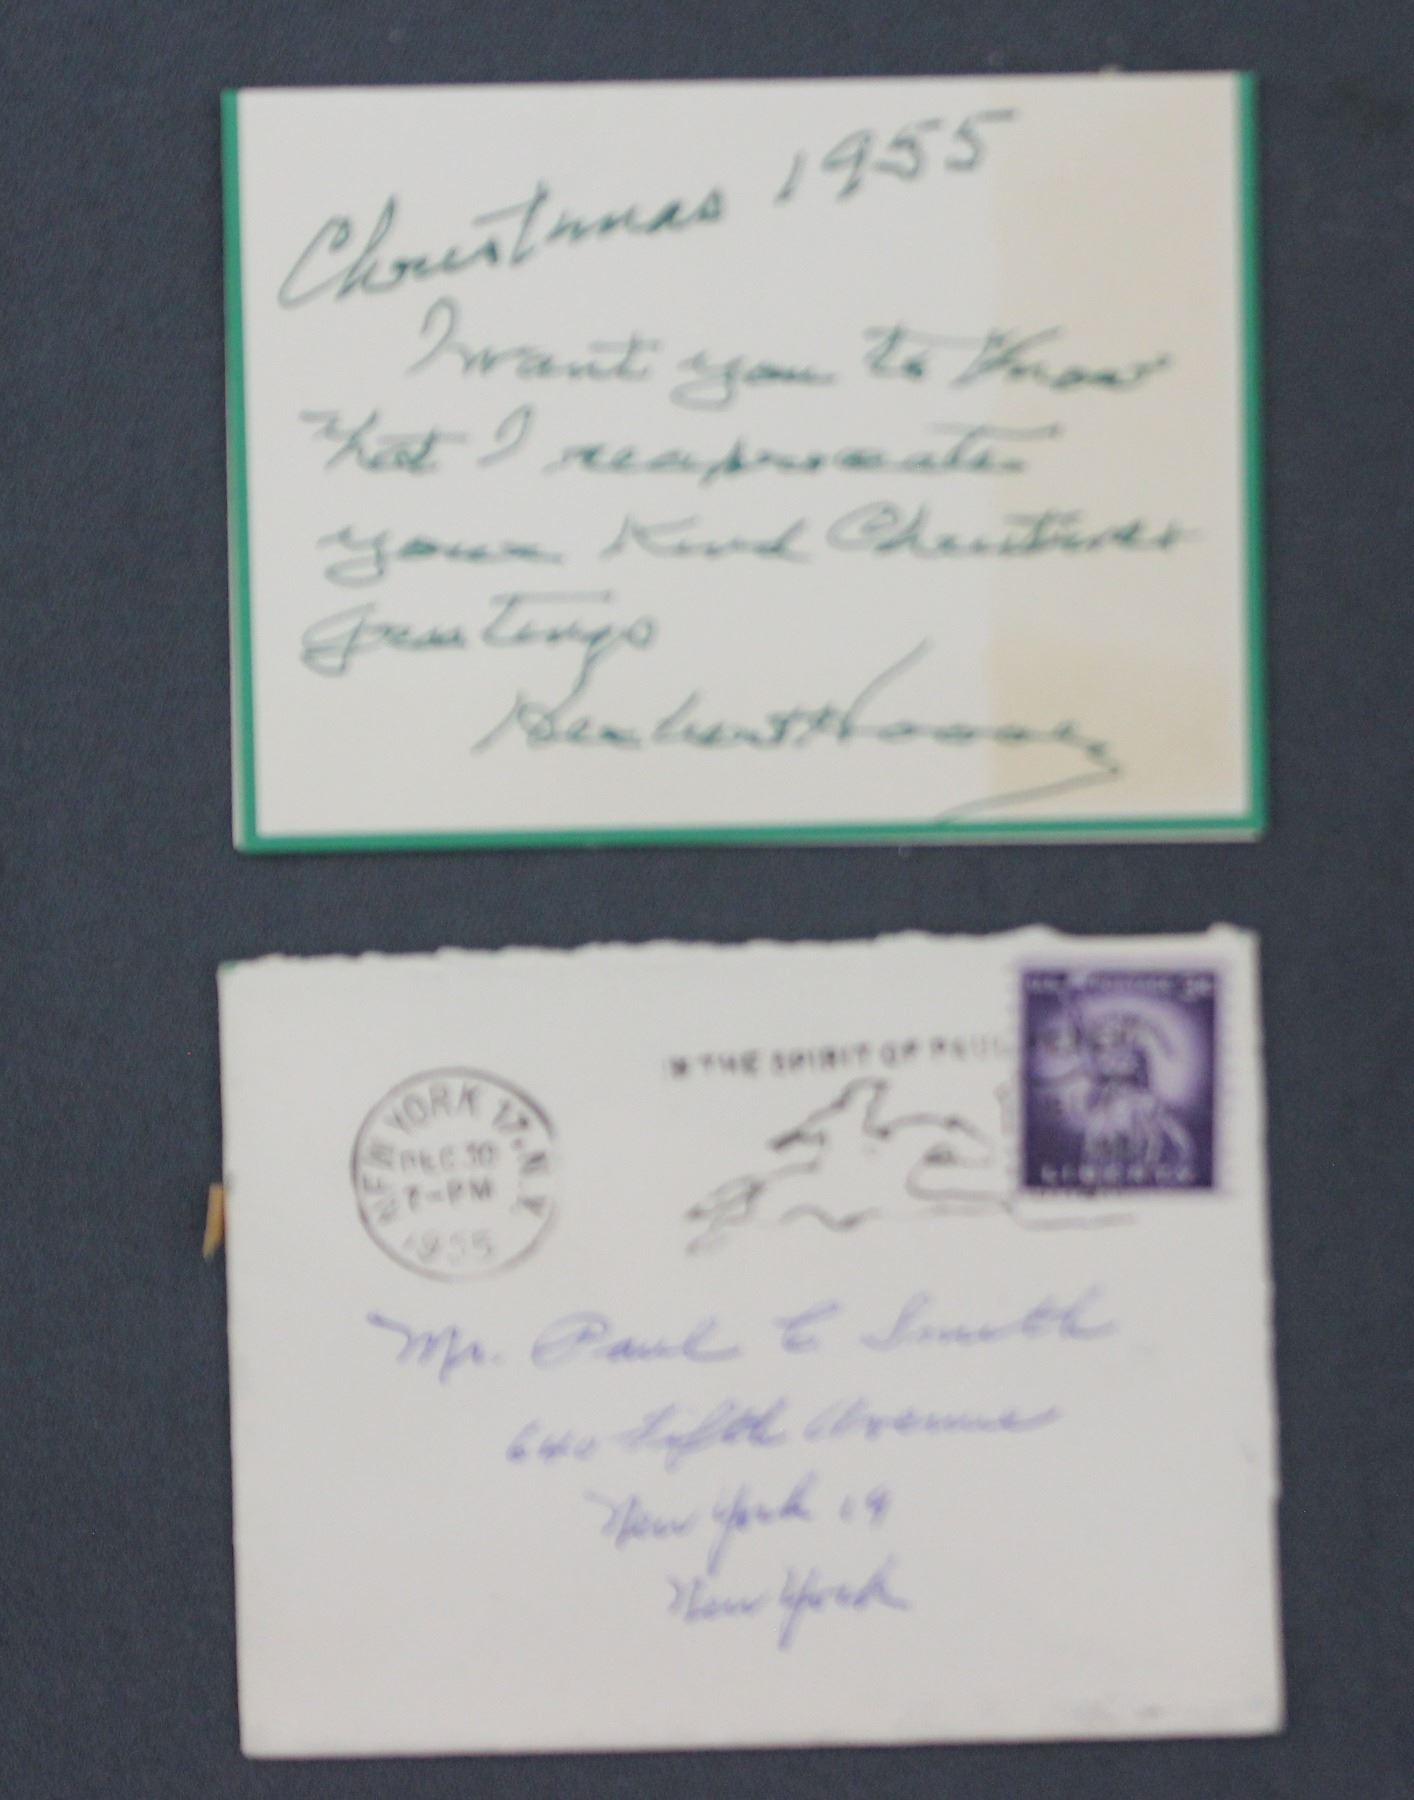 Christmas 1955
I want you to know
that I reciprocate
your kind Christmas
greetings
Herbert Hoover
THE SPIRIT OF PAUL
NEW YORK 17, N.Y.
DEC 30
7-PM
1955
LIBERTY
Mr. Paul C Smith
640 Fifth Avenue
New York 19
New York